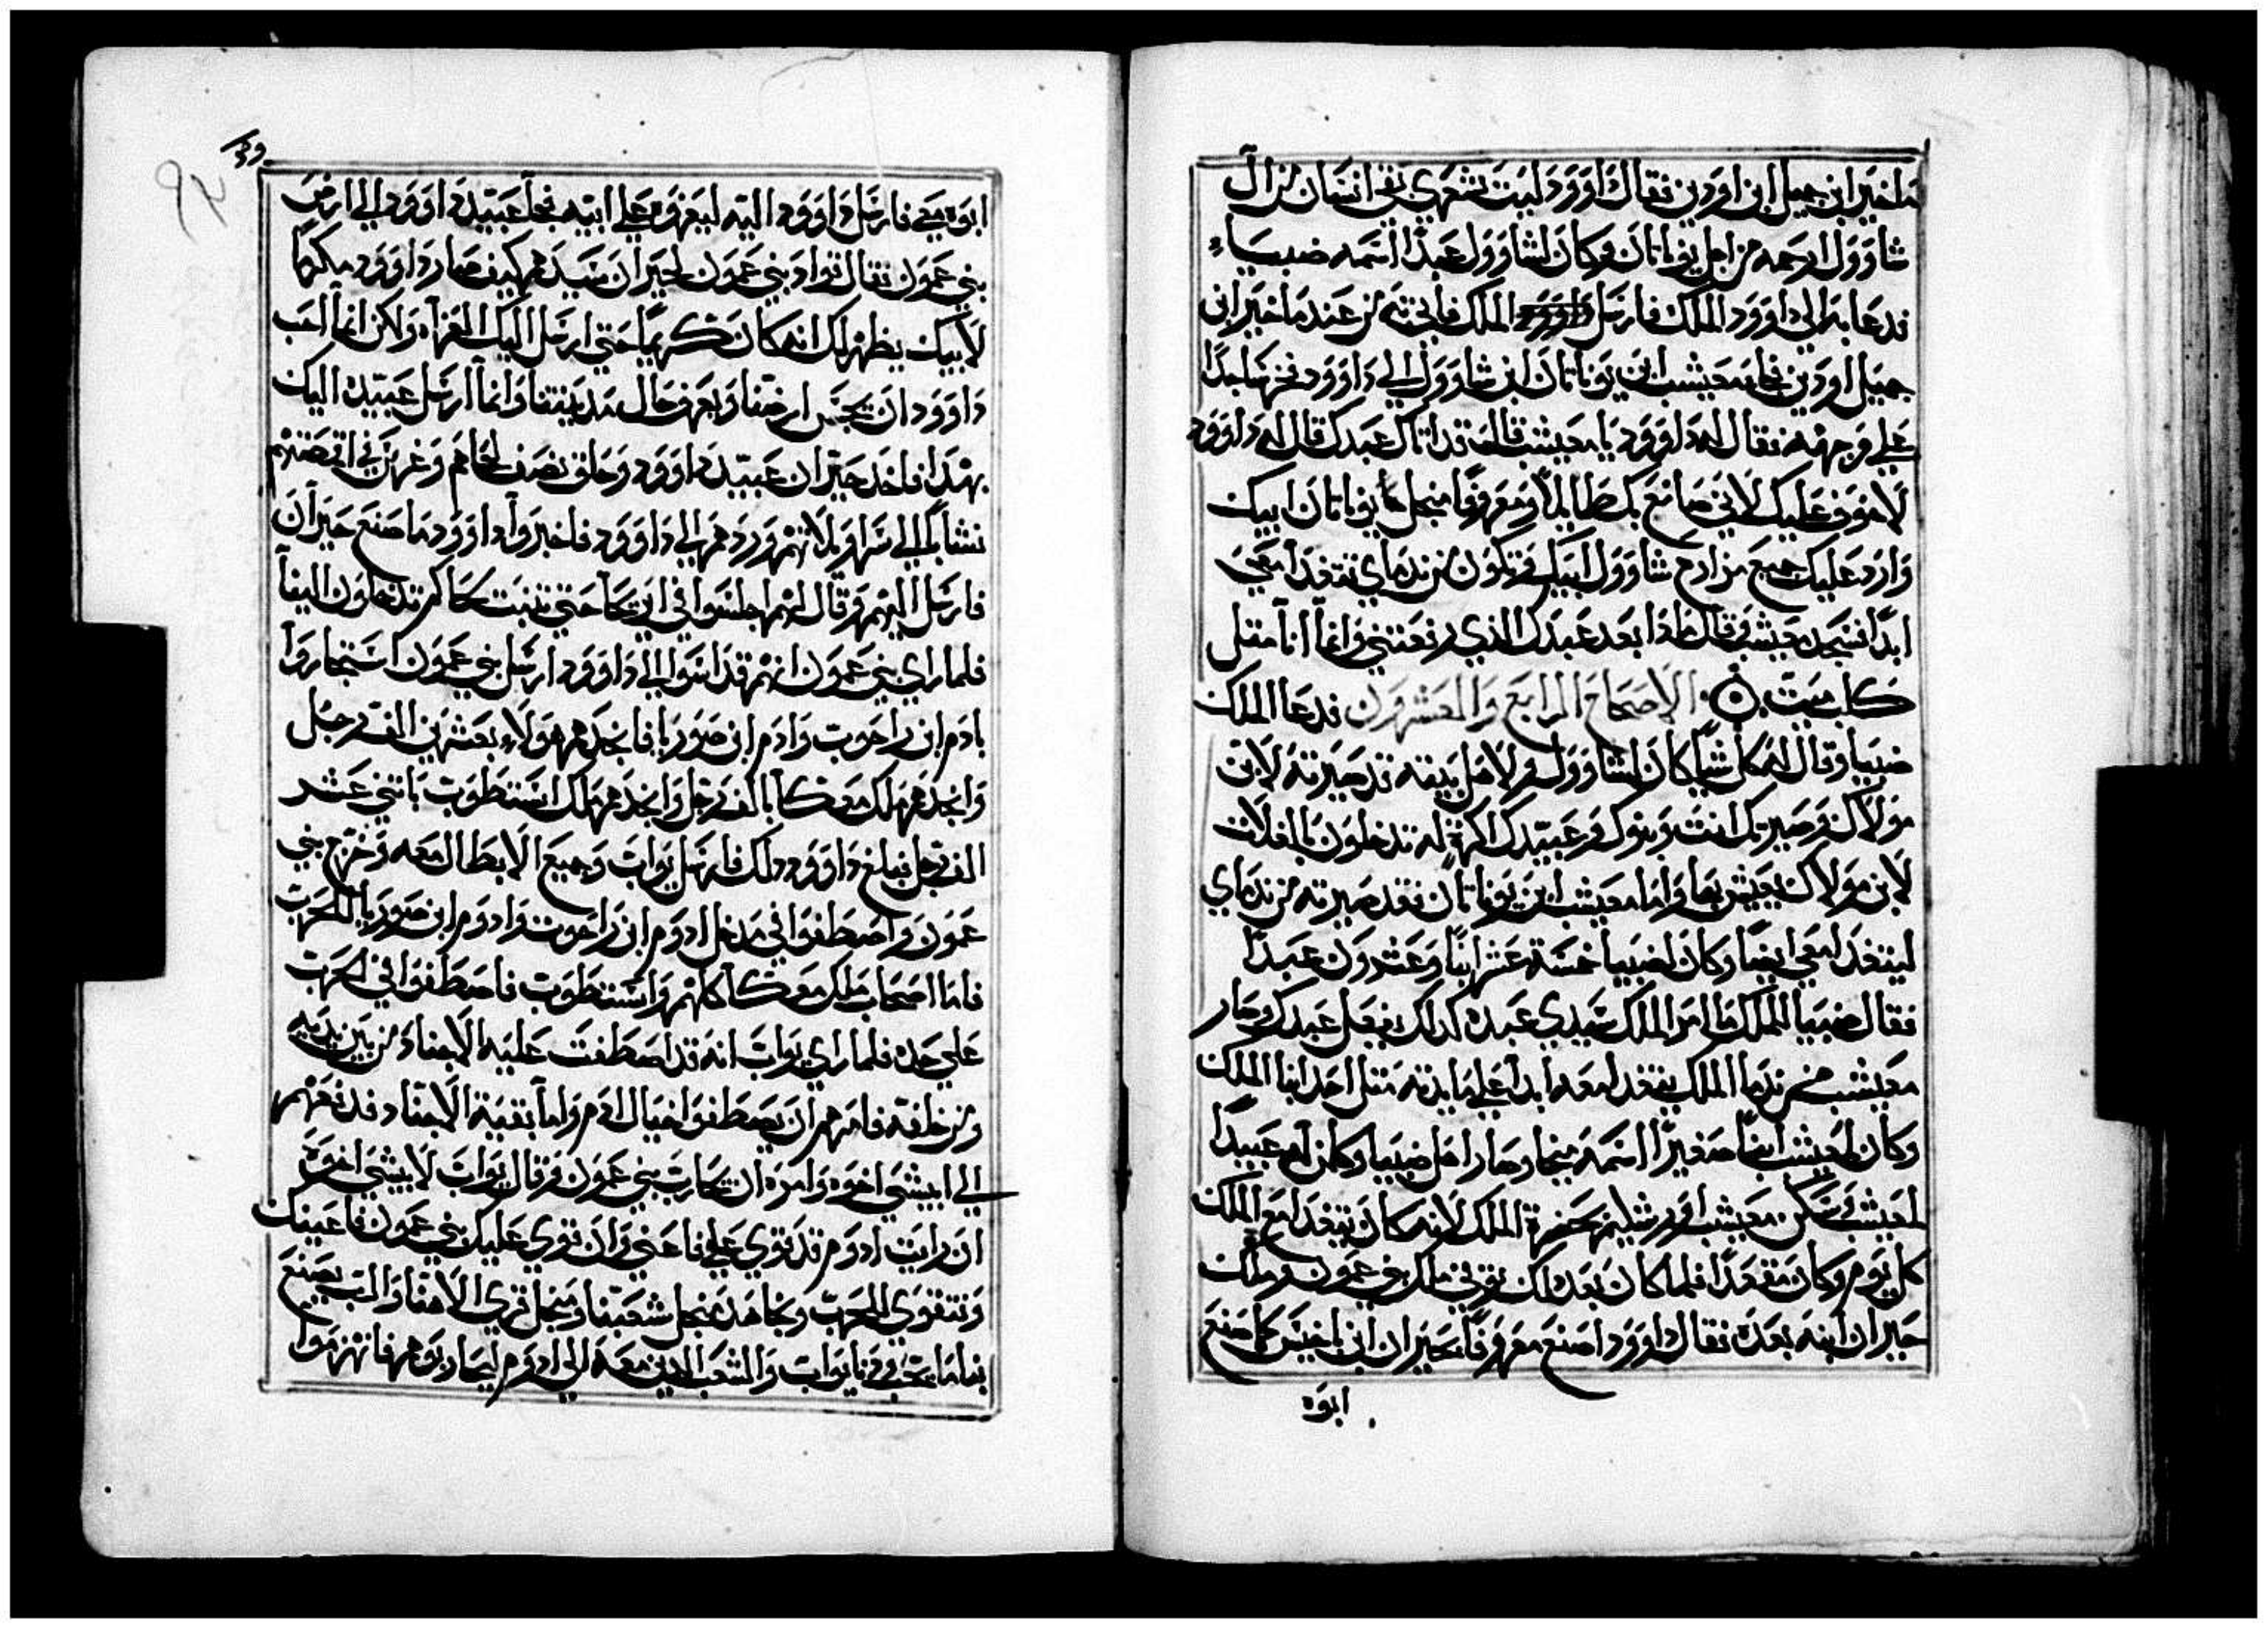 ماخير ابن جميل ابن اودين فقال داوود ليت شعري بقي انسان من ال
شاوول ارحمه من اجل يوناتان وكان لشاوول عبدًا اسمه ضيباء
فدعا به الي داوود الملك فارسل الملك فاتي به من عند ماخير ابن
جميل اودين فجاء معيشب ابن يوناتان ابن شاوول الي داوود فخر ساجدًا
علي وجهه فقال له داوود يا معيشب قال قد اتاك عبدك قال له داوود
لا خوف عليك لاني صانع بك طايلًا ومعروفًا منجل يوناتان ابيك
وارد عليك جميع مزارع شاوول ابيك وتكون من ندماي تتغدا معي
ابدًا فسجد معيشب وقال ماذا بعد عبدك الذي رفعتني وانما انا مثل
كلب ميت الاصحاح الرابع والعشرون فدعا الملك
ضيبا وقال له كل شيًا كان لشاوول ولاهل بيته قد صيرته لابن
مولاك وصيرتك انت وبنوك وعبيدك اكرة له تدخلون بالغلات
لابن مولاك يعيش بها واما معيشب ابن يوناتان فقد صيرته من ندماي
ليتغدا معي ايضًا وكان لضيبا خمسة عشر ابنًا وعشرون عبدًا
فقال ضيبا للملك ما امر الملك سيدي عبده كدلك يفعل عبدك وصار
معيشب من ندما الملك يتغدا معه ابدا علي مايدته متل احد ابنا الملك
وكان لمعيشب ابنًا صغيرًا اسمه ميخا وصار اهل ضيبا وكلمن له عبيدًا
لمعيشب وسكن معيشب اورشليم حضرة الملك لانه كان يتغدا مع الملك
كل يوم وكان مقعدًا فلما كان بعد دلك توفي ملك بني عمون وملك
حيران ابنه بعده فقال داوود اصنع معروفًا بحيران ابن ناحيش كما صنع
ابوه
ابوه معي فارسل داوود اليه ليعزوه علي ابيه فجا عبيد داوود الي ارض
بني عمون فقال قواد بني عمون لحيران سيدهم كيف صار داوود مكرمًا
لابيك يظهر لك انه كان كريمًا حتي ارسل اليك العزاه ولكن انما احب
داوود ان يجس ارضنا ويعرف حال مدينتنا وانما ارسل عبيده اليك
بهدا فاخد حيران عبيد داوود وحلق نصف لحاهم وغرس في اقصتهم
فشاكا الي سراويلاتهم وردهم الي داوود فاخبروا داوود ما صنع حيران
فارسل اليهم وقال لهم اجلسوا في اريحا حتي تنبت لحاكم تدخلون الينا
فلما راي بني عمون انهم قد اسوا الي داوود ارسل بني عمون استجاروا
بادم ابن راحوب وادم ابن صوربا فانجدهم هولاء بعشرين الف رجل
وانجدهم ملك معكا بالف رجل وانجدهم ملك استطوب باتني عشر
الف رجل فبلغ داوود دلك فارسل يواب وجميع الابطال معه وخرج بني
عمون واصطفوا في مدخل ادوم ابن راحوب وادوم ابن صوربا للحرب
فاما اصحاب ملك معكا كلهم واستطوب فاصطفوا في الحرب
علي حده فلما راي يواب انه قد اصطفت عليه الاجناد من بين يديه
ومن خلفه فامرهم ان يصطفوا خيال ادم واما بقية الاجناد فدفعهم
الي ابيشي اخوه وامره ان يحارب بني عمون وقال يواب لابيشي اخوه
ان رايت ادوم قد قوي علي فاعني وان قوي عليك بني عمون فاعينك
ونتقوي للحرب ونجاهد منجل شعبنا ومنجل قري الاهنا والرب يصنع
بنا ما يحب ودنا يواب والشعب الدين معه الي ادوم ليحاربوهم فانهزموا